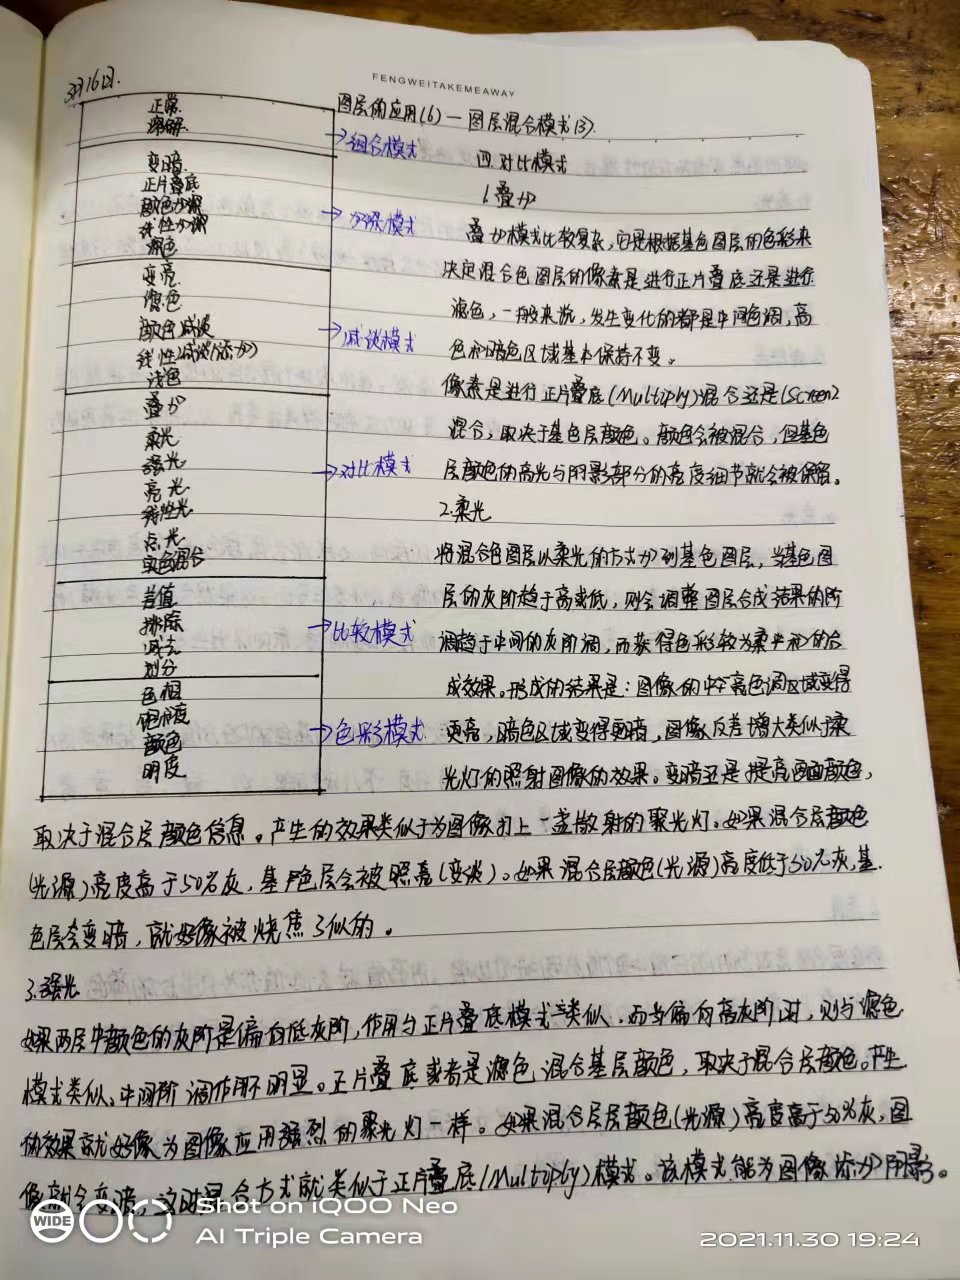 FENGWEITAKEMEAWAY
3月16日.
正常
溶解
变暗
正片叠底
颜色加深
线性加深
深色
变亮
滤色
颜色减淡
线性减淡(添加)
浅色
叠加
柔光
强光
亮光
线性光
点光
实色混合
差值
排除
减去
划分
色相
饱和度
颜色
明度
→组合模式
→加深模式
→减淡模式
→对比模式
→比较模式
→色彩模式
图层的应用(6)—图层混合模式(3)
四.对比模式
1.叠加
叠加模式比较复杂,它是根据基色图层的色彩来
决定混合色图层的像素是进行正片叠底还是进行
滤色,一般来说,发生变化的都是中间色调,高
色和暗色区域基本保持不变。
像素是进行正片叠底(Multiply)混合还是(Screen)
混合,取决于基色层颜色。颜色会被混合,但基色
层颜色的高光与阴影部分的亮度细节就会被保留。
2.柔光
将混合色图层以柔光的方式加到基色图层,当基色图
层的灰阶趋于高或低,则会调整图层合成结果的阶
调趋于中间的灰阶调,而获得色彩较为柔和的合
成效果。形成的结果是:图像的中高色调区域变得
更亮,暗色区域变得更暗,图像反差增大类似于柔
光灯的照射图像的效果。变暗还是提亮画面颜色,
取决于混合层颜色信息。产生的效果类似于为图像打上一盏散射的聚光灯。如果混合层颜色
(光源)亮度高于50%灰,基色层会被照亮(变淡)。如果混合层颜色(光源)亮度低于50%灰,基
色层会变暗,就好像被烧焦了似的。
3.强光
如果两层中颜色的灰阶是偏向低灰阶,作用与正片叠底模式类似,而当偏向高灰阶时,则与滤色
模式类似。中间阶调作用不明显。正片叠底或者是滤色混合基层颜色,取决于混合层颜色。产生
的效果就好像为图像应用强烈的聚光灯一样。如果混合层层颜色(光源)亮度高于50%灰,图
像就会变暗,这时混合方式就类似于正片叠底(Multiply)模式。该模式能为图像添加阴影。
WIDE
Shot on iQOO Neo
AI Triple Camera
2021.11.30 19:24